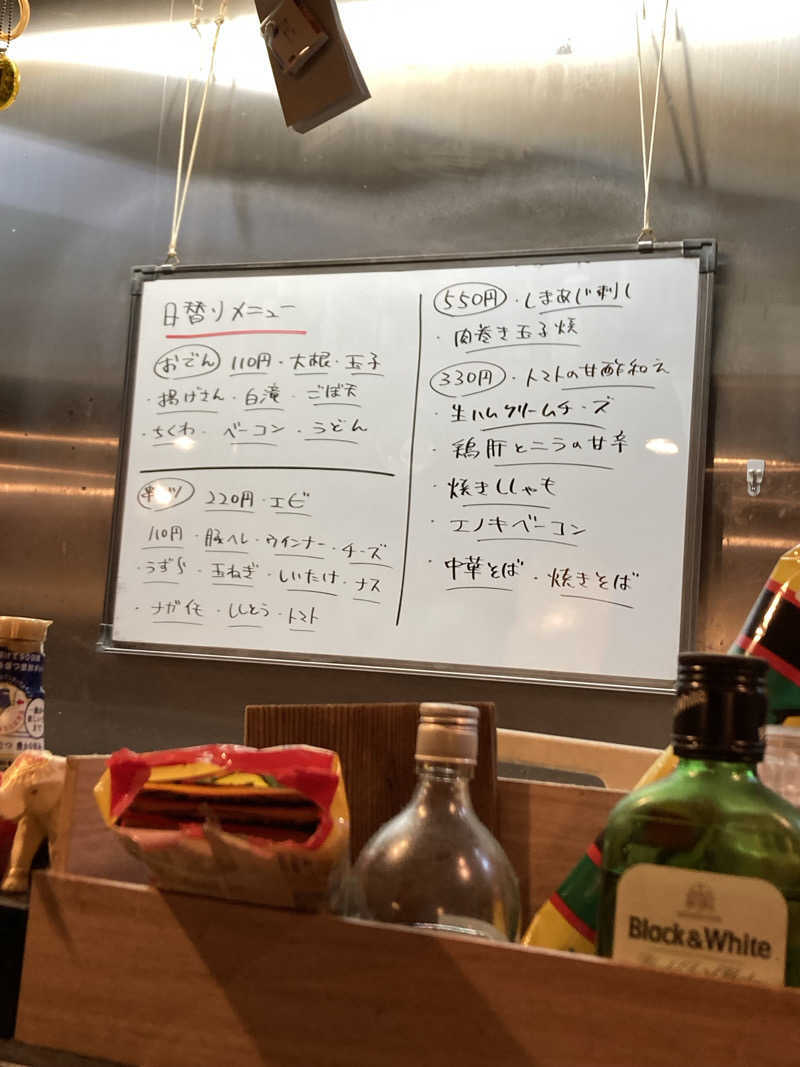 日替りメニュー
おでん 110円・大根・玉子
・揚げさん・白滝・ごぼ天
・ちくわ・ベーコン・うどん
串カツ 220円・エビ
110円・豚ヘレ・ウインナー・チーズ
・うずら・玉ねぎ・しいたけ・ナス
・ナガイモ・ししとう・トマト
550円・しまあじ刺し
・肉巻き玉子焼
330円・トマトの甘酢和え
・生ハムクリームチーズ
・鶏肝とニラの甘辛
・焼きししゃも
・エノキベーコン
・中華そば・焼きそば
Black&White